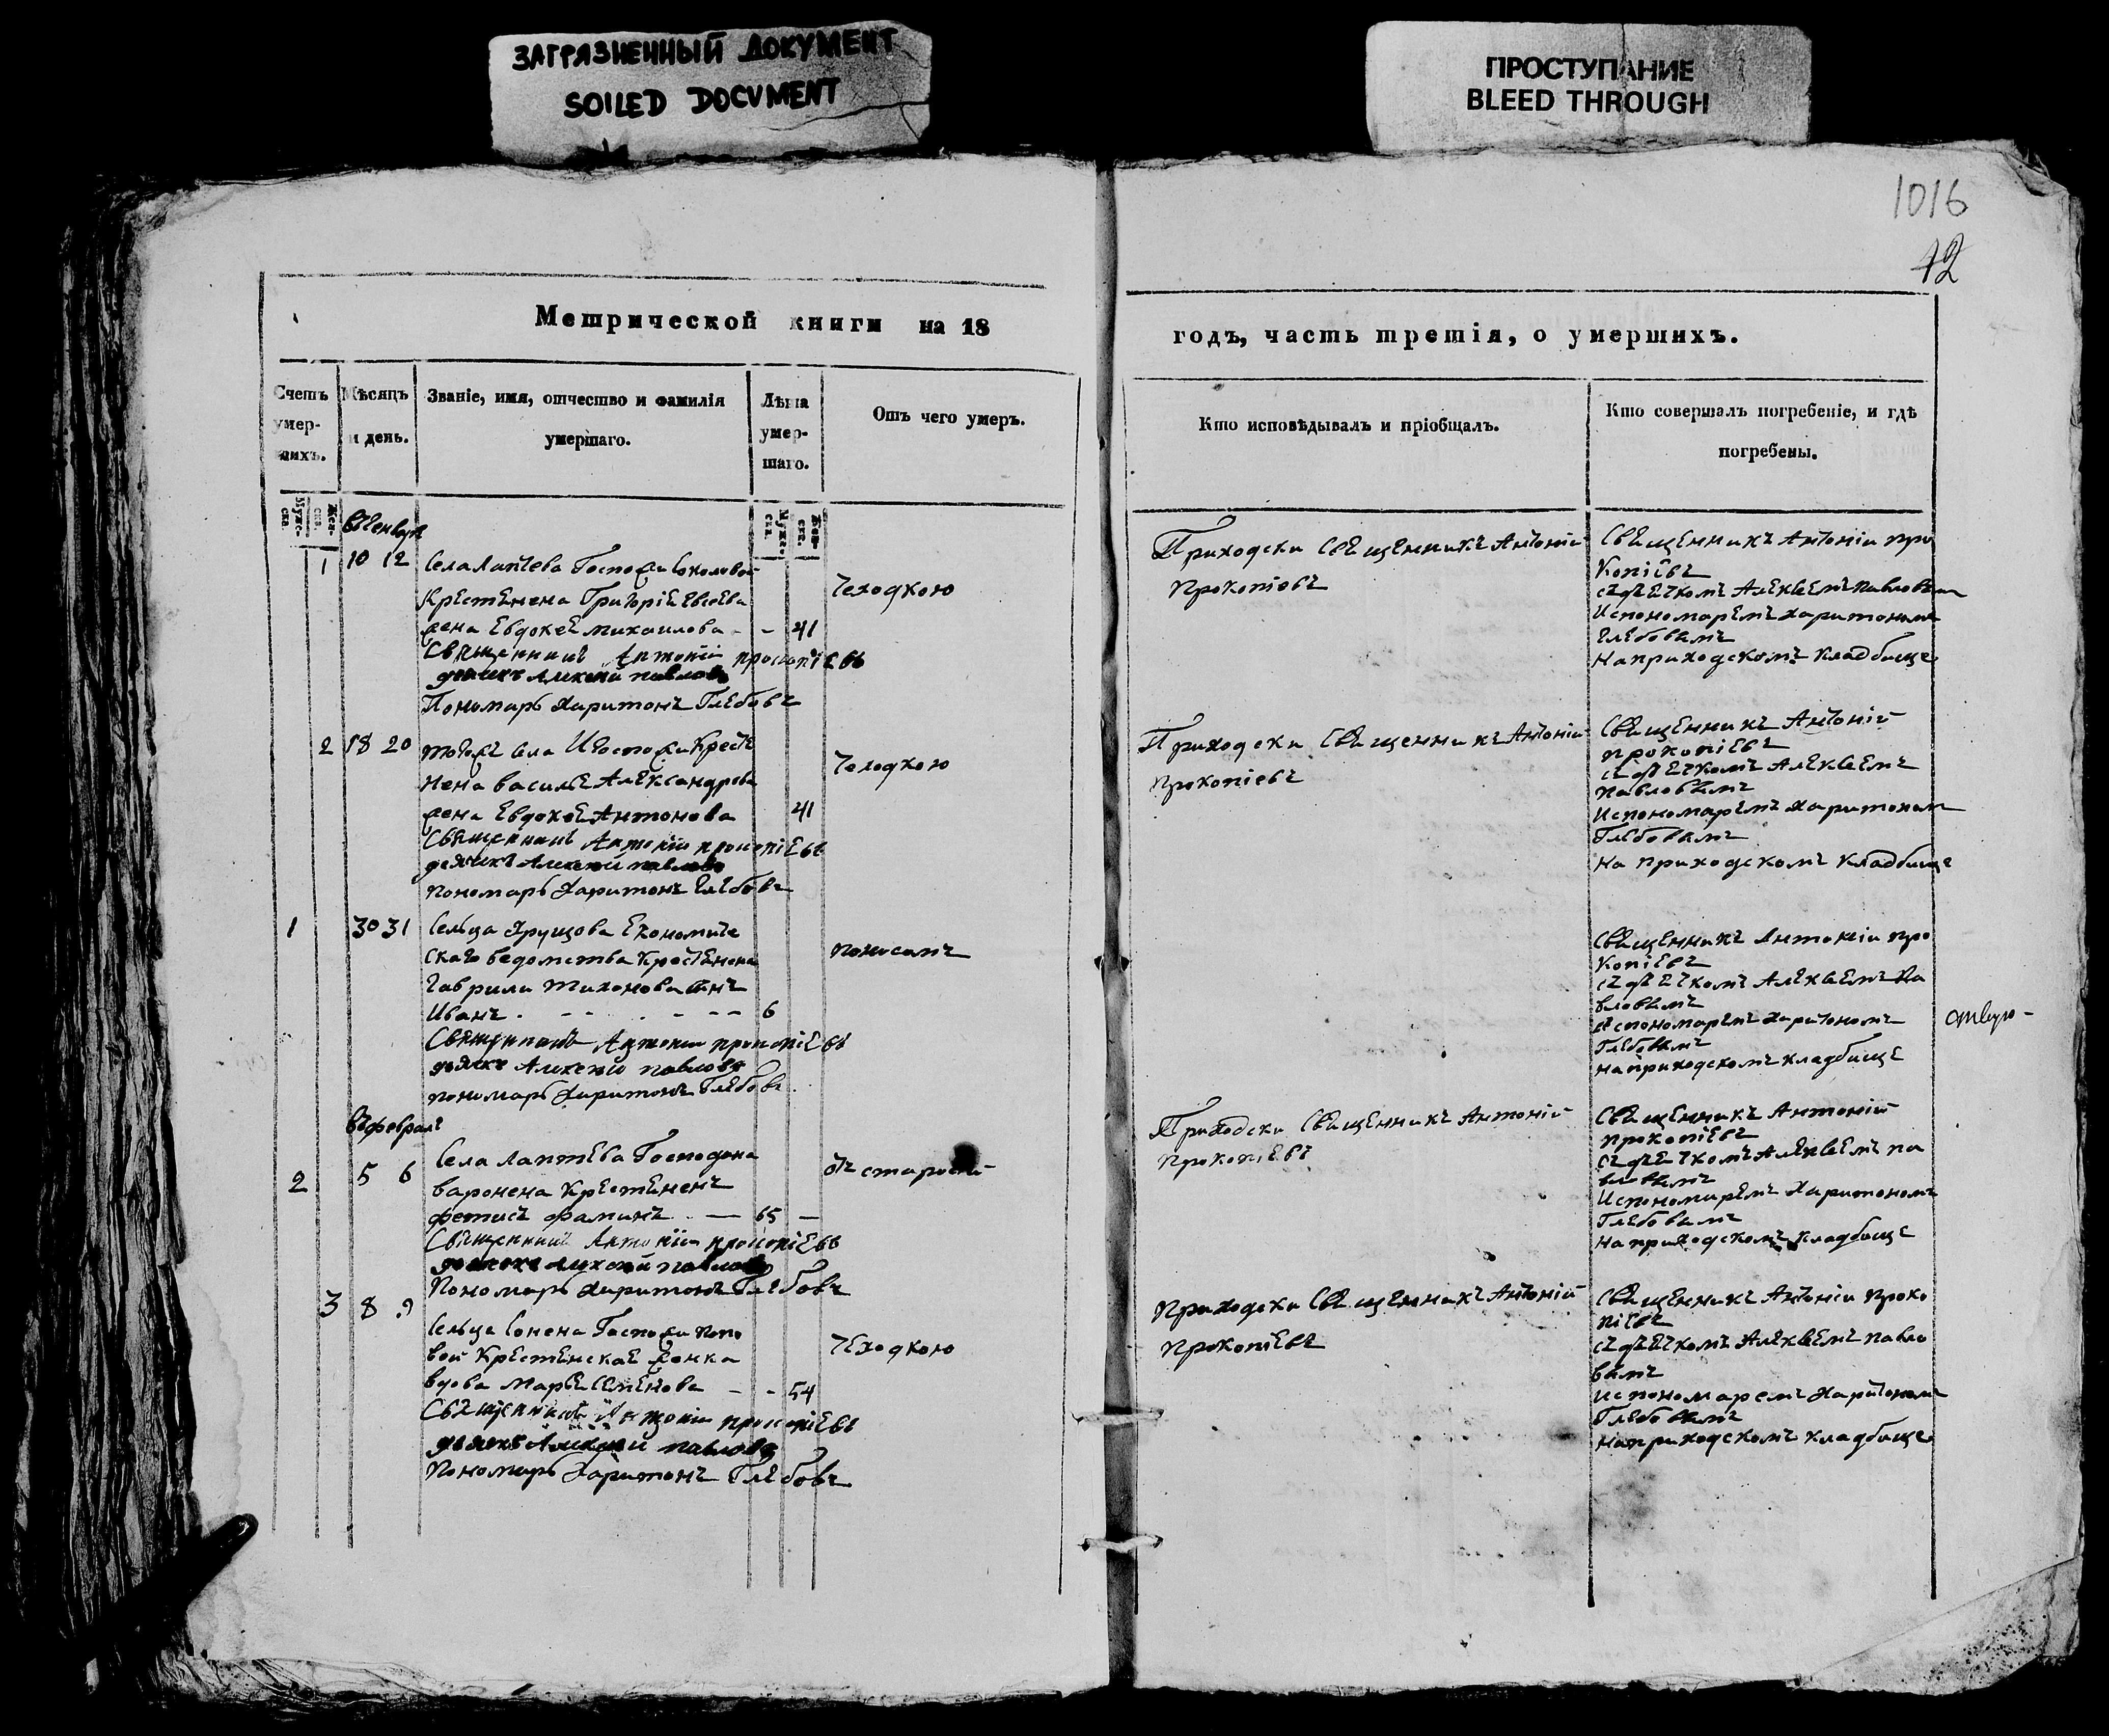 ЗАГРЯЗНЕННЫЙ ДОКУМЕНТ
SOILED DOCUMENT
ПРОСТУПАНИЕ
BLEED THROUGH
1016
12
Метрической книги на 18
годъ, часть третія, о умершихъ.
Счетъ умер-шихъ.
Мѣсяцъ и день.
Званіе, имя, отчество и фамилія
умершаго.
Лѣта умер-шаго.
Отъ чего умеръ.
Кто исповѣдывалъ и пріобщалъ.
Кто совершалъ погребеніе, и гдѣ
погребены.
Муже-ска.
Жен-ска.
Муже-ска.
Жен-ска.
1 10 12 Села Лаптева Госпожи Соколовой
Крестенена Григоріе Евсеева
жена Евдокее михаилова - - 41
Священникъ Антоній прокопіевъ
дьячекъ Алексей павловъ
Пономарь Харитонъ Глебовъ
чеходкою
Приходски Священникъ Антоній
Прокопіевъ
Священникъ Антоніи про
копіевъ
съ дьечкомъ Алексеемъ Павловым
и спономаремъ харитоном
глебовымъ
на приходскомъ кладбище
2 18 20 тогожъ села И госпожи крест
нена василье Александрова
жена Евдокее Антонова 41
Священникъ Антоніи прокопіевъ
дьячекъ Алексей павловъ
пономарь Харитонъ глебовъ
Приходски Священникъ Антоніи
Прокопіевъ
Священникъ Антоній
прокопіевъ
съ дьечкомъ Алексеемъ
павловымъ
и спономаремъ харитоном
Глебовымъ
на приходскомъ кладбище
1 30 31 Сельца Хрущова Економиче
скаго ведомства крестенена
Гаврила тихонова сынъ
Иванъ - - - - - 6
Священникъ Антоніи прокопіевъ
дьячекъ Алексей павловъ
пономарь Харитонъ Глебовъ
поносомъ
Священникъ Антоніи про
копіевъ
съ дьечкомъ Алексеемъ па
вловымъ
и спономаремъ Харитономъ
Глебовымъ
на приходскомъ кладбище
въ феврале
2 5 6 Села Лаптева Господина
варонена крестененъ
фетисъ фоминъ - 65 -
Священникъ Антоніи прокопіевъ
дьячекъ Алексей павловъ
Пономарь Харитонъ Глебовъ
отъ старости
Приходски Священникъ Антоній
Прокопіевъ
Священникъ Антоній
прокопіевъ
съ дьечкомъ Алексеемъ па
вловымъ
и спономаремъ Харитономъ
Глебовымъ
на приходскомъ кладбище
3 8 9
Сельца Сонена Госпожи попо
вой крестенскае жонка
вдова марье Семенова - - 54
Священникъ Антоніи прокопіевъ
дьячекъ Алексей павловъ
Пономарь Харитонъ Глебовъ
чеходкою
Приходски Священникъ Антоній
Прокопіевъ
Священникъ Антоніи проко
піевъ
съ дьечкомъ Алексеемъ павло
вымъ
и спономаремъ Харитоном
Глебовымъ
на приходскомъ кладбище